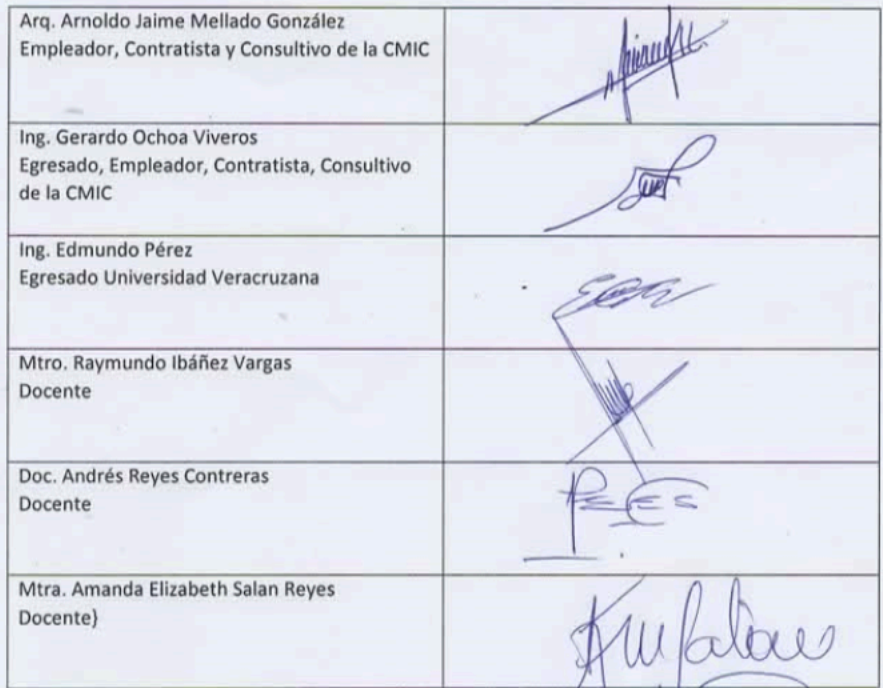 Arq. Arnoldo Jaime Mellado González
Empleador, Contratista y Consultivo de la CMIC
Ing. Gerardo Ochoa Viveros
Egresado, Empleador, Contratista, Consultivo
de la CMIC
Ing. Edmundo Pérez
Egresado Universidad Veracruzana
Mtro. Raymundo Ibáñez Vargas
Docente
Doc. Andrés Reyes Contreras
Docente
Mtra. Amanda Elizabeth Salan Reyes
Docente}